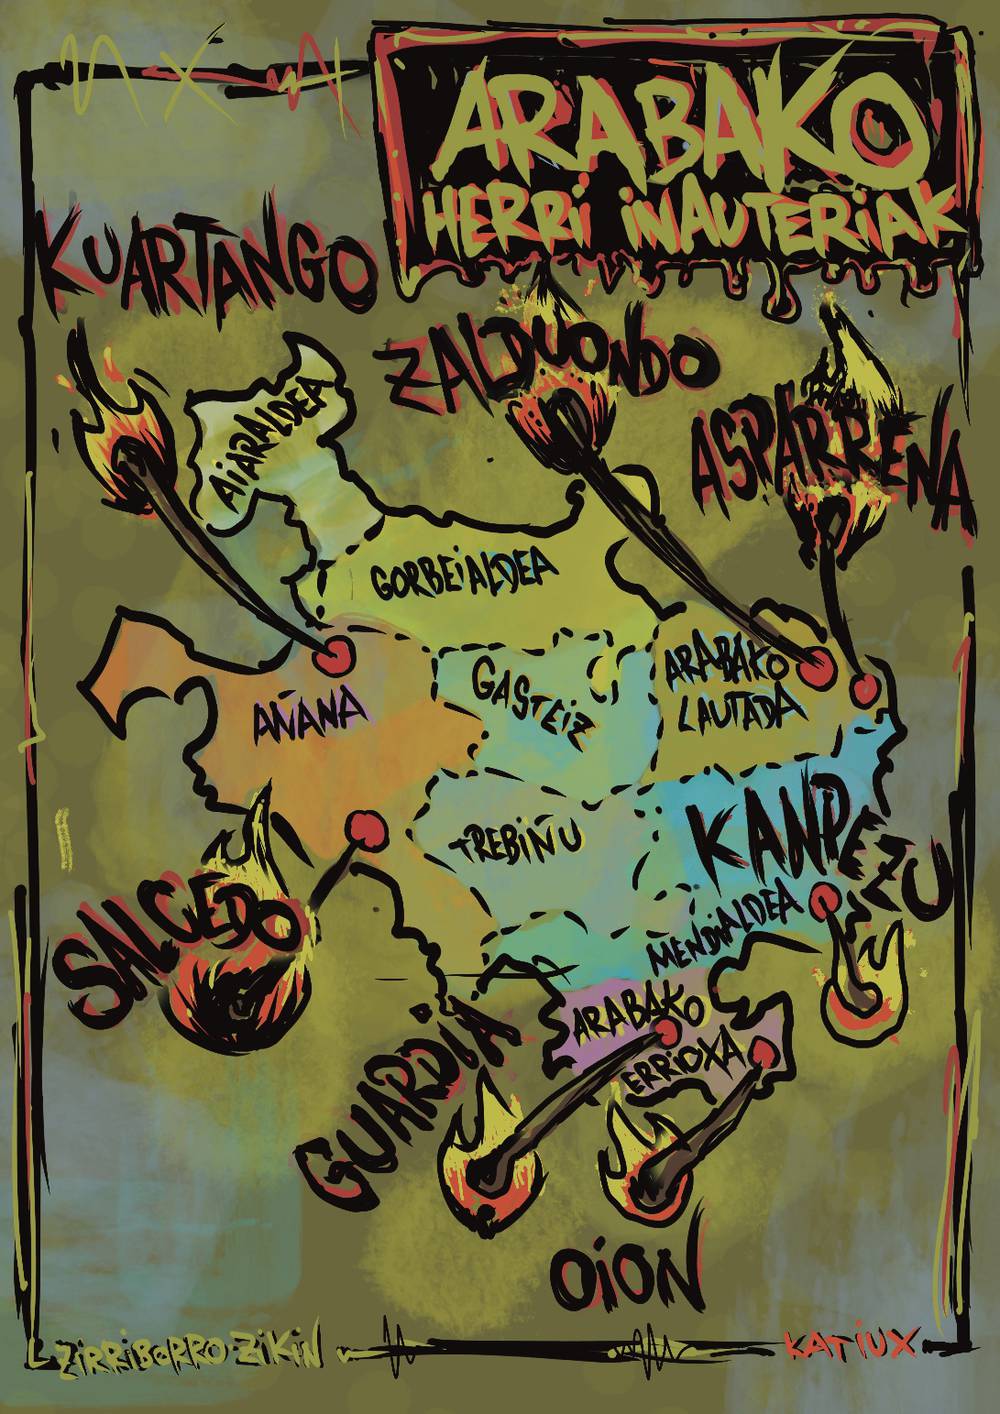 ARABAKO
HERRI INAUTERIAK
KUARTANGO
ZALDUONDO
ASPARRENA
AIARALDEA
GORBEIALDEA
ARABAKO
LAUTADA
GASTEIZ
AÑANA
TREBIÑU
KANPEZU
MENDIALDEA
SALCEDO
ARABAKO
ERRIOXA
GUARDIA
OION
ZIRRIBORRO ZIKIN
KATIUX